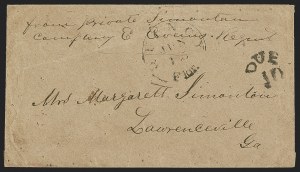 from private Simonton
company E Ewing Regent
DUE
10
Mrs Margarett Simonton
Lawrenceville
Ga